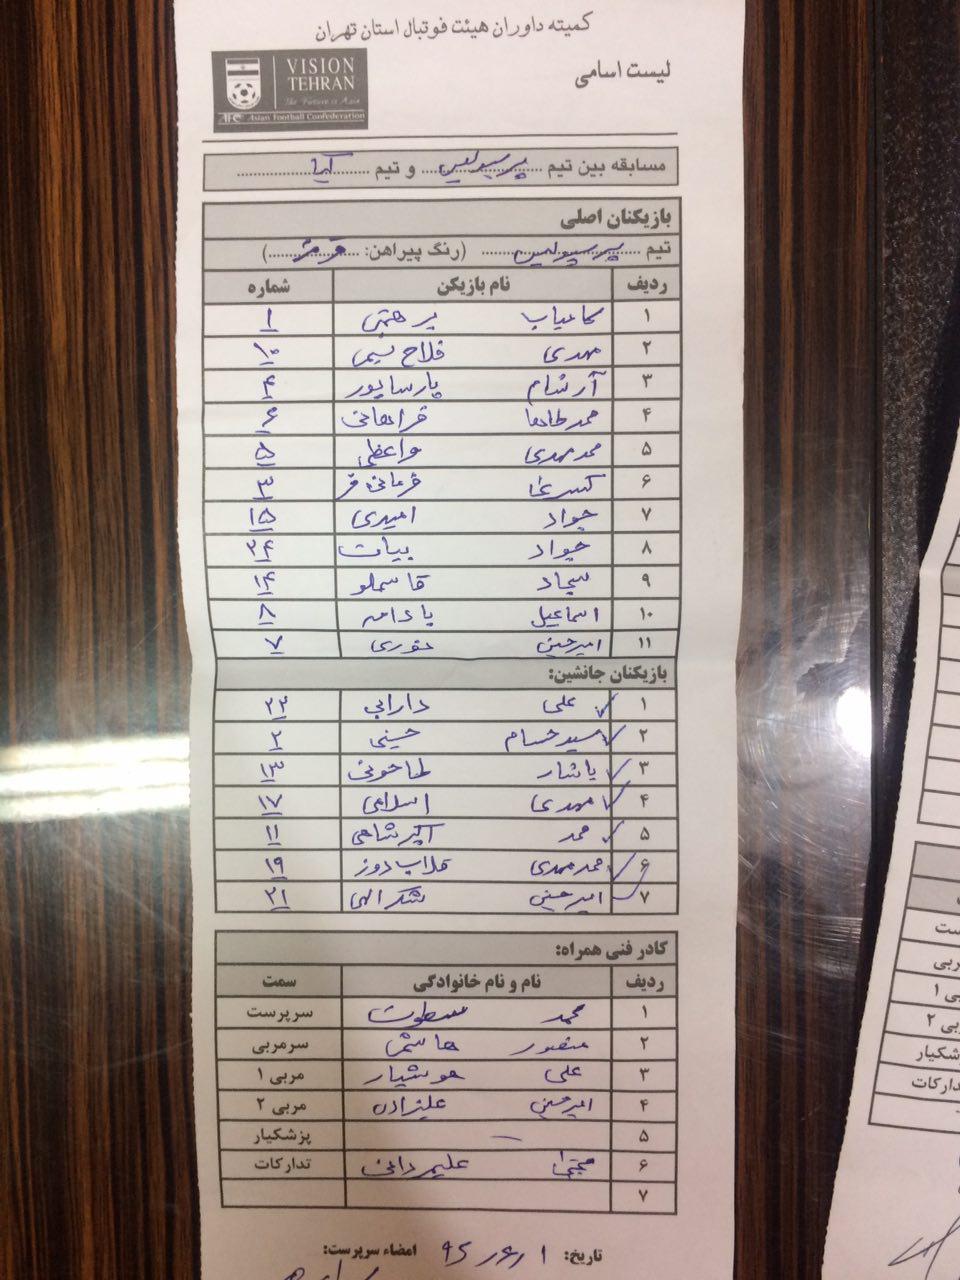 کمیته داوران هیئت فوتبال استان تهران
لیست اسامی
VISION
TEHRAN
The Future is Asia
AFC Asian Football Confederation
مسابقه بین تیم پرسپولیس و تیم آریا
بازیکنان اصلی
تیم پرسپولیس (رنگ پیراهن: قرمز)
ردیف نام بازیکن شماره
۱ کامیاب پرهمتی ۱
۲ مهدی فلاح نسیمی ۱۰
۳ آرشام پارساپور ۴
۴ محمدطاها فراهانی ۶
۵ محمدمهدی واعظی ۵
۶ کسری فرمانی فر ۳
۷ جواد امیری ۱۵
۸ جواد بیات ۲۴
۹ سجاد قاسملو ۱۴
۱۰ اسماعیل ۸
۱۱ امیرحسین ۷
بازیکنان جانشین:
۱ علی دارابی ۲۲
۲ سیدحسام حسینی ۲
۳ یاشار طاحونی ۱۳
۴ مهدی اسلامی ۱۷
۵ محمد اکبرشاهی ۱۱
۶ محمدمهدی قلاب دوز ۱۹
۷ امیرحسین شکرالهی ۲۱
کادر فنی همراه:
ردیف نام و نام خانوادگی سمت
۱ محمد سطوت سرپرست
۲ منصور هاشمی سرمربی
۳ علی هوشیار مربی ۱
۴ امیرحسین علیزاده مربی ۲
۵ — پزشکیار
۶ مجتبی علیمردانی تدارکات
۷
تاریخ: ۹۵/۶/۱ امضاء سرپرست:
ست
ربی
بی ۱
بی ۲
شکیار
دارکات